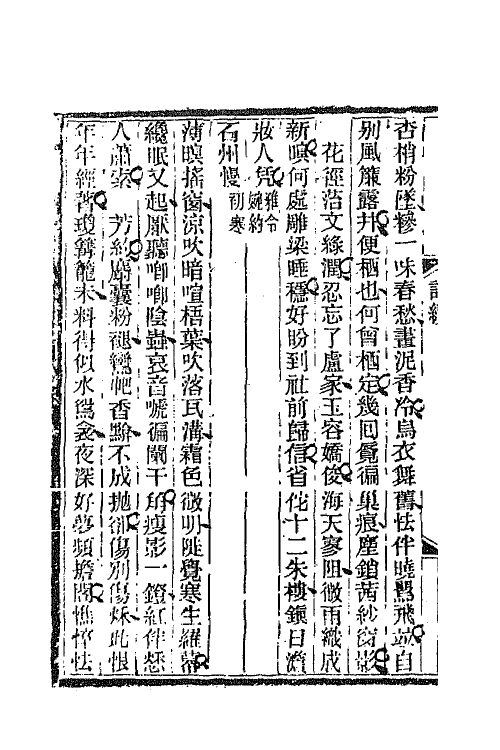 杏梢粉墜糝一味春愁畫泥香冷烏衣舞舊怯伴曉鴛飛並自
別風簾露井便栖也何曾栖定幾回覓徧巢痕塵鎖茜紗窗影
花徑沾文綠潤忍忘了盧家玉容嬌俊海天寥阻微雨織成
新暝何處雕梁睡穩好盼到社前歸信省侘十二朱樓鎮日澹
妝人凭
雅令
婉約
石州慢
初寒
薄暝搖窗涼吹暗喧梧葉吹落瓦溝霜色微明陡覺寒生羅幕
纔眠又起厭聽啣啣陰蟲哀音嘹徧闌干角瘦影一鐙紅伴愁
人蕭索　芳約麝囊粉褪鸞帊香黦不成拋卻傷別傷秋此恨
年年經著瓊篝龍未料得似水鴛衾夜深好夢頻擔閣憔悴怯